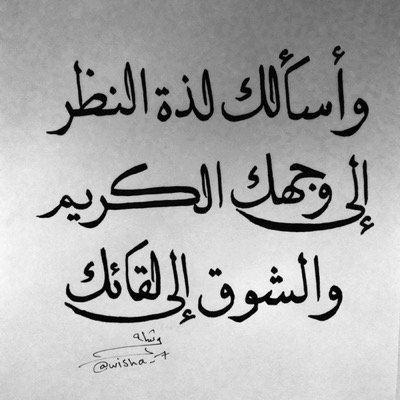 وأسألك لذة النظر
إلى وجهك الكريم
والشوق إلى لقائك
@wisha_